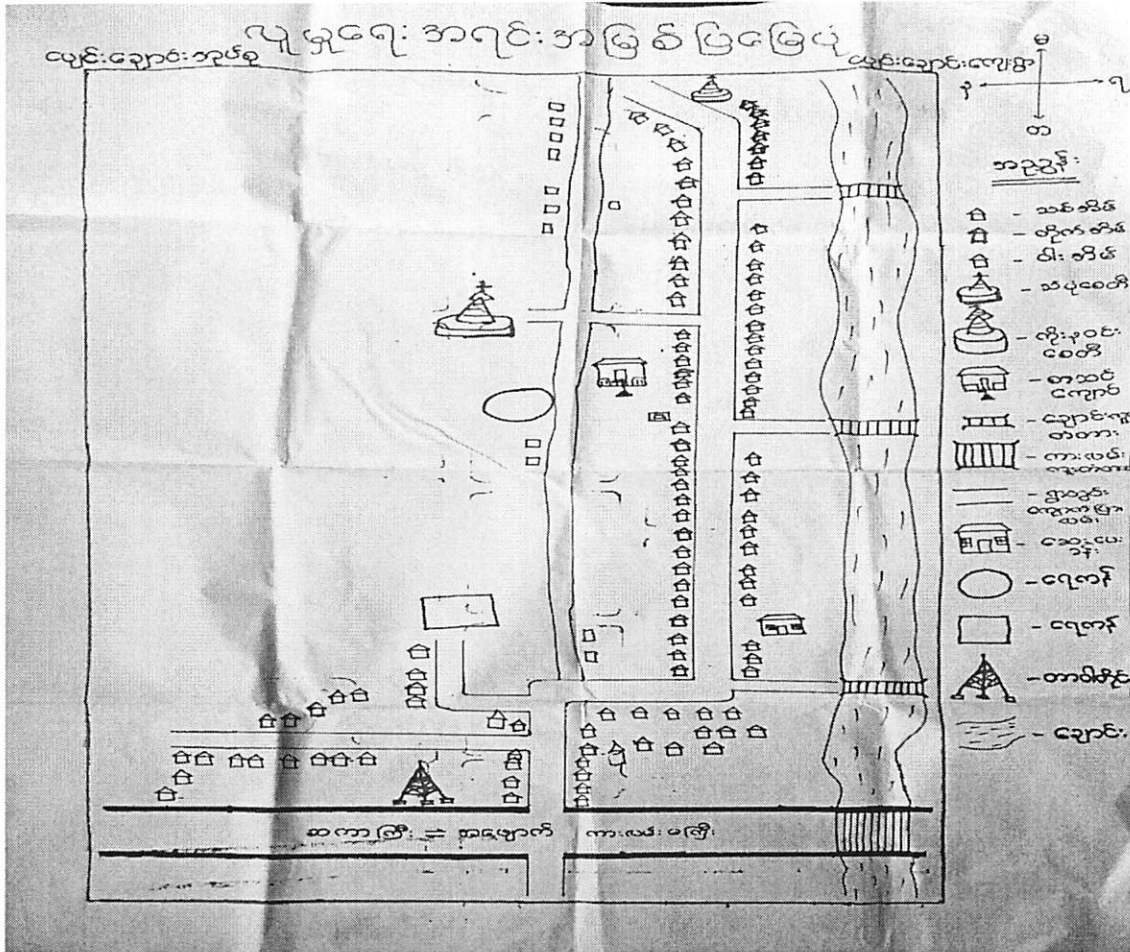 လူမှုရေးအရင်းအမြစ်ပြမြေပုံ
ယျင်းချောင်းအုပ်စု
ယျင်းချောင်းကျေးရွာ
မ
န
တ
အညွှန်း
- သစ်အိမ်
- တိုက်အိမ်
- ဝါးအိမ်
- သံပုံစေတီ
- ကိုးနဝင်း
စေတီ
- စာသင်
ကျောင်း
- ချောင်းကူး
တံတား
- ကားလမ်း
ကူးတံတား
- ရွာတွင်း
ကျောက်ပြား
လမ်း
- ဆေးပေး
ခန်း
- ရေကန်
- ရေကန်
- တာဝါတိုင်
- ချောင်း
ဆကာကြီး = အဖျောက် ကားလမ်းမကြီး